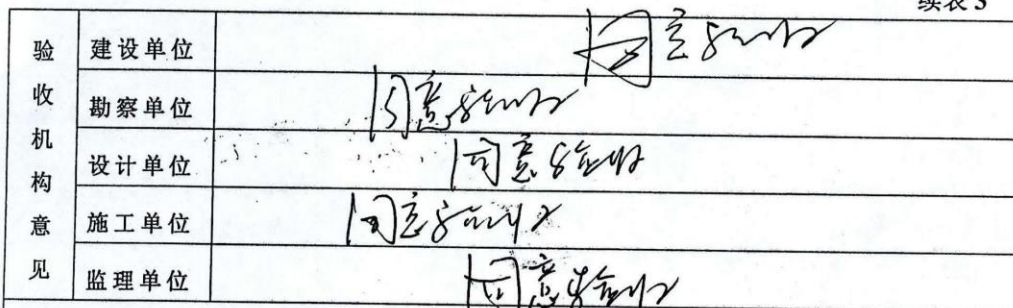 续表3
验收机构意见
建设单位 同意验收
勘察单位 同意验收
设计单位 同意验收
施工单位 同意验收
监理单位 同意验收